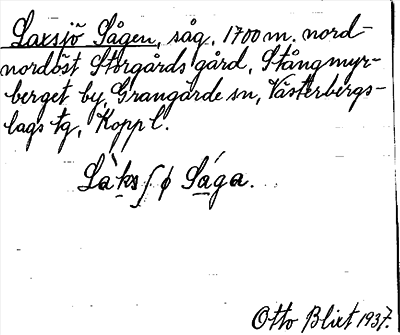 Laxsjö Sågen, såg, 1700 m. nord-
nordöst Storgårds gård, Stångmyr-
berget by, Grangärde sn, Västerbergs-
lags tg, Kopp l.
Là̱ks ʃ ɸ Sá̱ga.
Otto Blixt 1937.